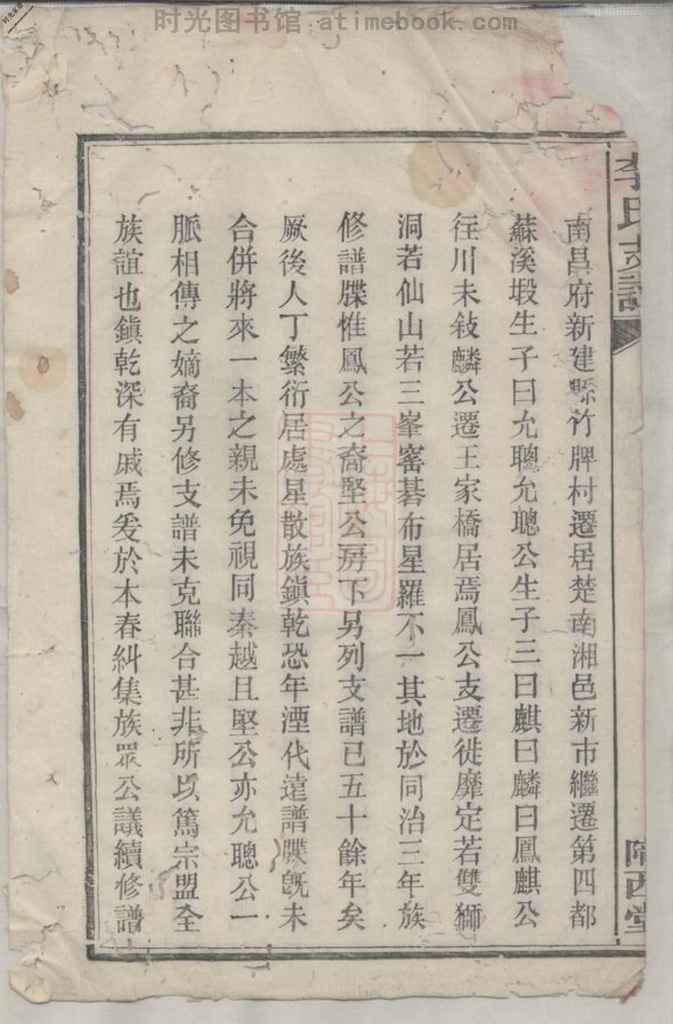 时光图书馆·atimebook.com
李氏支譜
隴西堂
南昌府新建縣竹牌村遷居楚南湘邑新市繼遷第四都
蘇溪塅生子曰允聰允聰公生子三曰麒曰麟曰鳳麒公
徃川未敍麟公遷王家橋居焉鳳公支遷徙靡定若雙獅
洞若仙山若三峯窰碁布星羅不一其地於同治三年族
修譜牒惟鳳公之裔堅公房下另列支譜已五十餘年矣
厥後人丁繁衍居處星散族鎮乾恐年湮代遠譜牒旣未
合併將來一本之親未免視同秦越且堅公亦允聰公一
脈相傳之嫡裔另修支譜未克聯合甚非所㠯篤宗盟全
族誼也鎮乾深有戚焉爰於本春糾集族眾公議續修譜